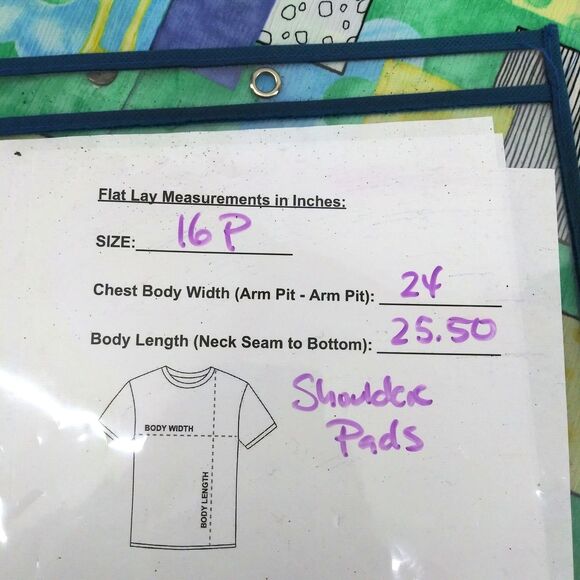 Flat Lay Measurements in Inches:
SIZE: 16 P
Chest Body Width (Arm Pit - Arm Pit): 24
Body Length (Neck Seam to Bottom): 25.50
Shoulder
Pads
BODY WIDTH
BODY LENGTH